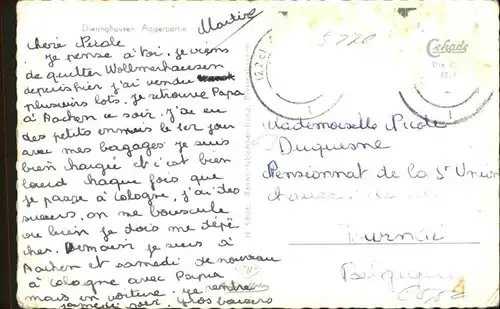 Dieringhausen Aggerpartie
Martine
Chère Nicole
Je pense à toi. Je viens
de quitter Wollmerhausen
depuis hier j'ai vendu
plusieurs lots. Je retrouve Papa
à Aachen ce soir. J'ai eu
des petits ennuis le 1er jour
avec mes bagages. Je suis
bien chargée et c'est bien
lourd chaque fois que
je passe à Cologne, j'ai des
sueurs, on me bouscule
ou bien je dois me dépê
cher. Demain je suis à
Aachen et samedi de nouveau
à Cologne avec Papa
mais en voiture. Je rentre
samedi soir. Gros baisers
5770
Cekade
Mademoiselle Nicole
Duquesne
Pensionnat de la St Union
Tournai
Belgique